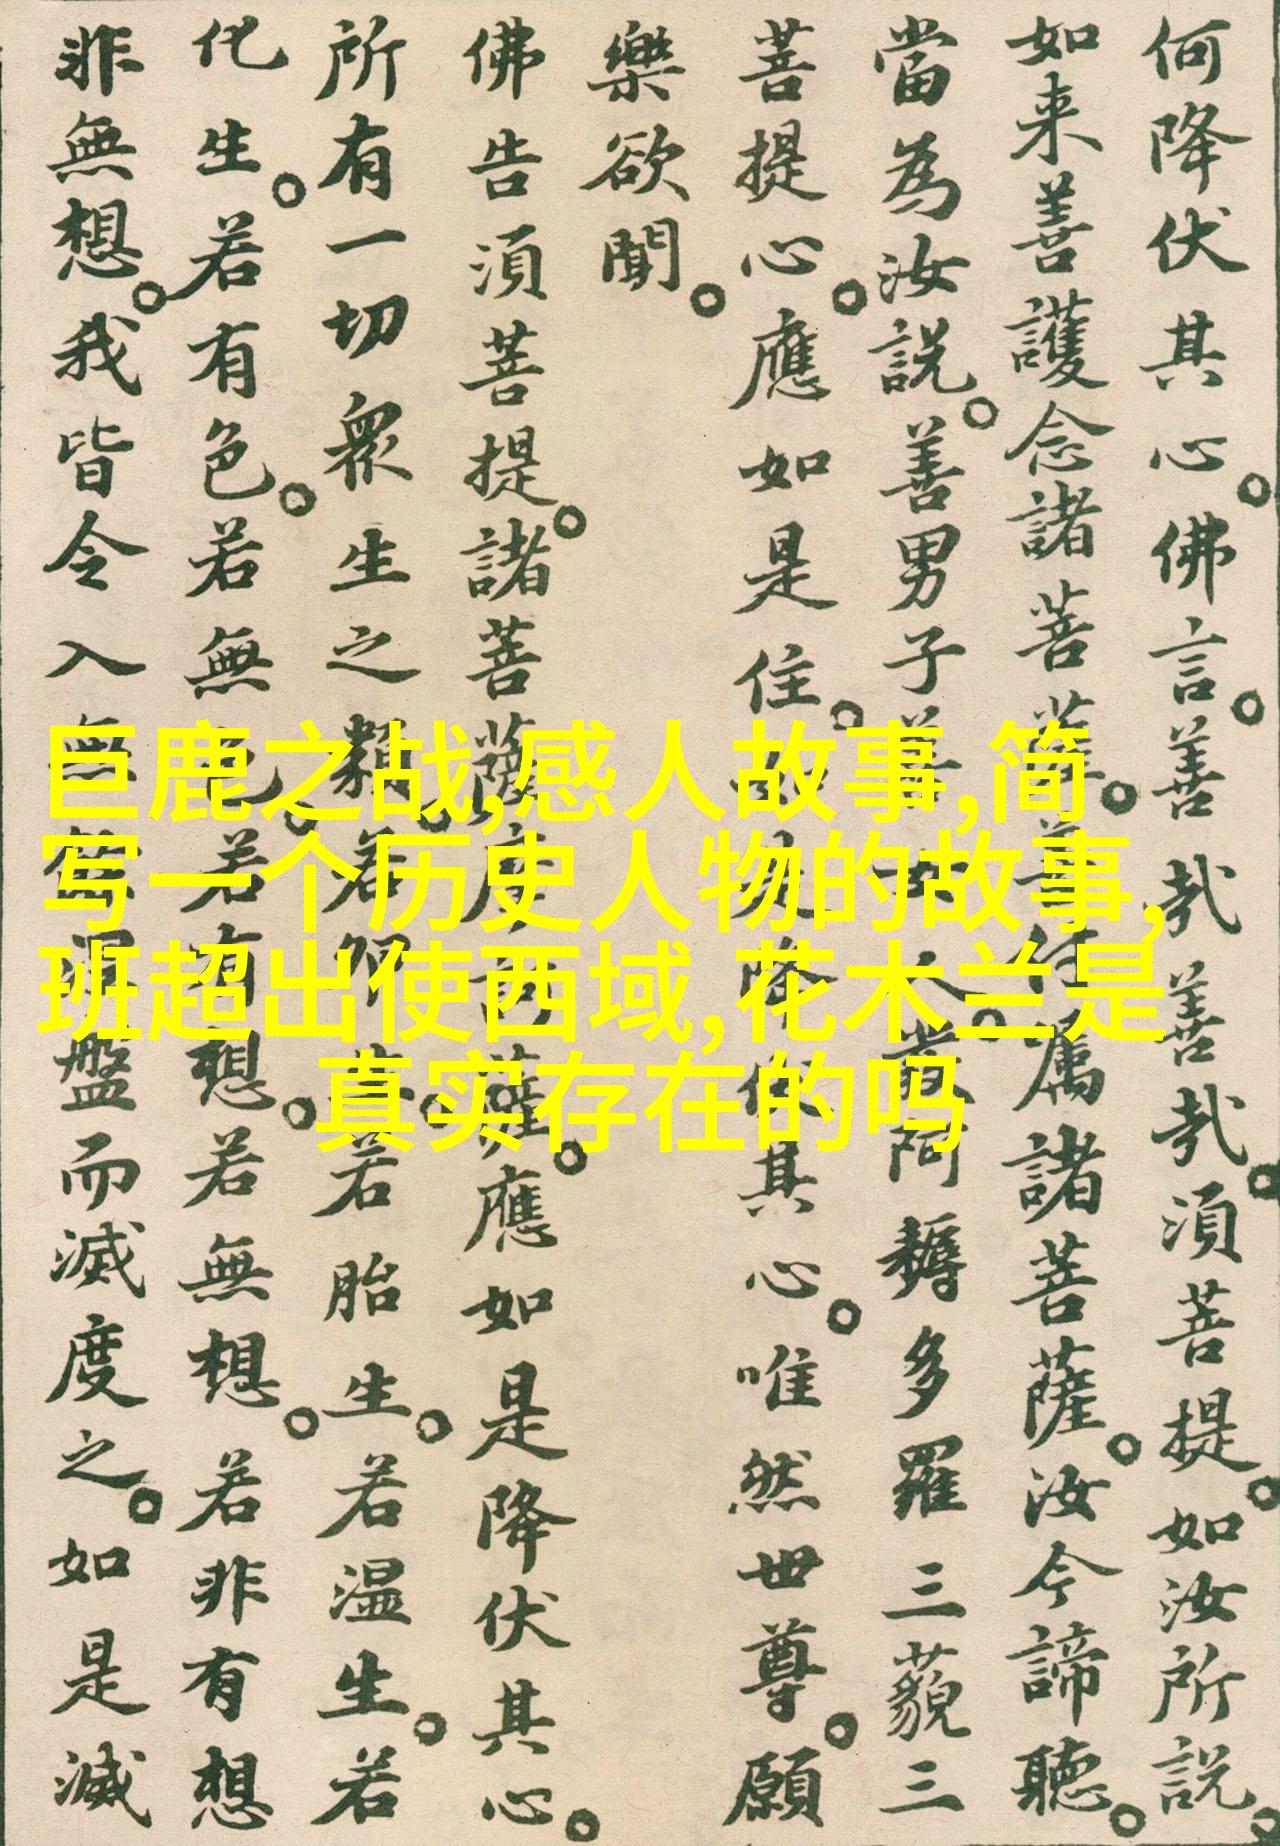 何降伏其心。佛言。善哉善哉。須菩提。如汝所説。
如来善護念諸菩薩。善付属諸菩薩。汝今諦聽。
當為汝説。善男子善女人。發阿耨多羅三藐三
菩提心。應如是住。如是降伏其心。唯然世尊。願
樂欲聞。
佛告須菩提。諸菩薩摩訶薩。應如是降伏其心。
所有一切衆生之類。若卵生。若胎生。若温生。若
化生。若有色。若無色。若有想。若無想。若非有想
非無想。我皆令入無餘涅盤而滅度之。如是滅
巨鹿之战,感人故事,简
写一个历史人物的故事,
班超出使西域,花木兰是
真实存在的吗